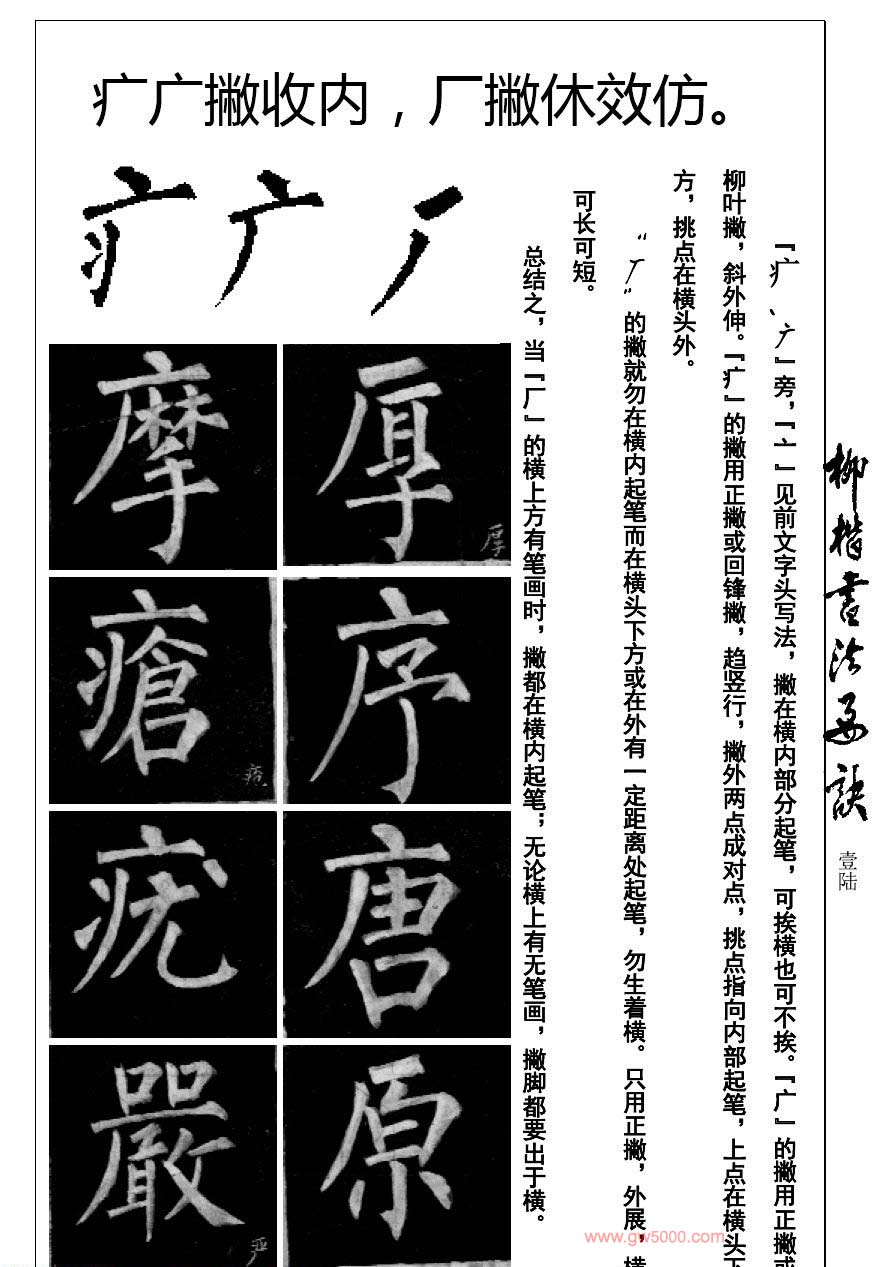 疒广撇收内，厂撇休效仿。
『疒、广』旁，『亠』见前文字头写法，撇在横内部分起笔，可挨横也可不挨。『广』的撇用正撇或
柳叶撇，斜外伸。『疒』的撇用正撇或回锋撇，趋竖行，撇外两点成对点，挑点指向内部起笔，上点在横头下
方，挑点在横头外。
“厂”的撇就勿在横内起笔而在横头下方或在外有一定距离处起笔，勿生着横。只用正撇，外展，横
可长可短。
总结之，当『厂』的横上方有笔画时，撇都在横内起笔；无论横上有无笔画，撇脚都要出于横。
疒 广 厂
摩 厚
厚
瘡 序
疮
疣 唐
嚴 原
严
柳楷书法要诀
壹陆
www.gw5000.com